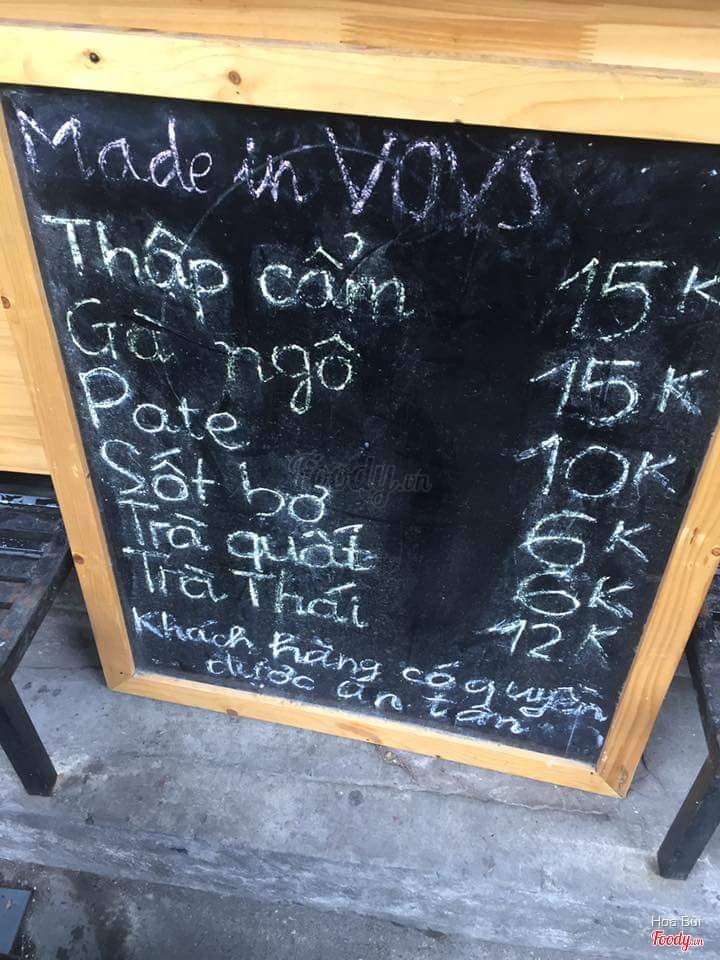 Made in VOVS
Thập cẩm 15K
Gà ngô 15K
Pate 10K
Sốt bơ 6K
Trà quất 6K
Trà Thái 12K
Khách hàng có quyền
được ăn tại
Foody.vn
Hoa Bùi
Foody.vn